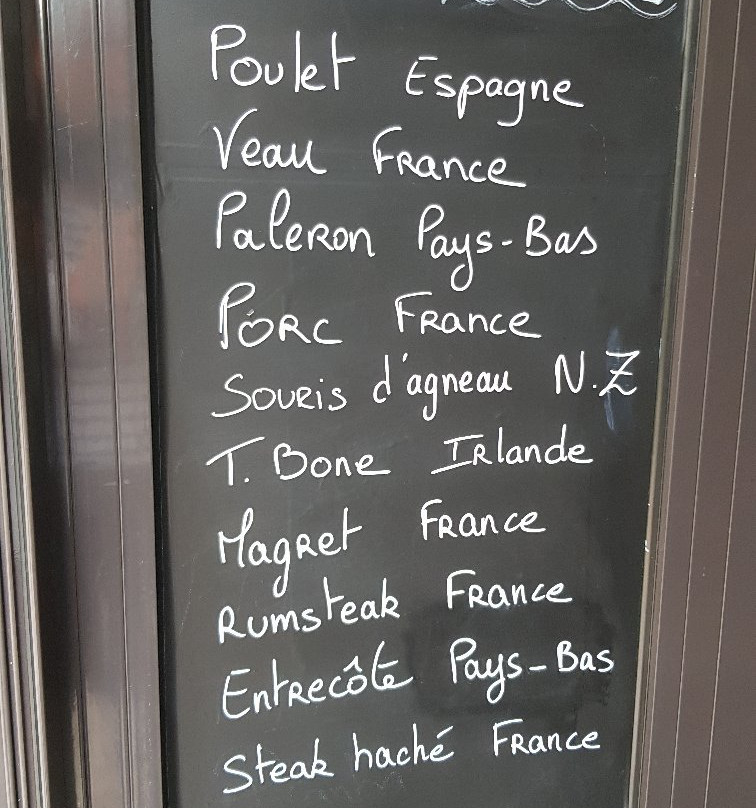 Poulet Espagne
Veau France
Paleron Pays-Bas
Porc France
Souris d'agneau N.Z
T. Bone Irlande
Magret France
Rumsteak France
Entrecôte Pays-Bas
Steak haché France